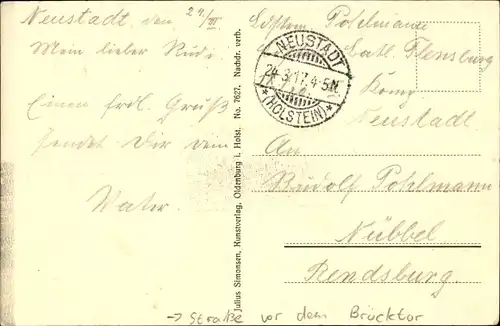 Neustadt, den 24/III
Mein lieber Rudi
Einen frdl. Gruß
sendet Dir dein
Vater.
Julius Simonsen, Kunstverlag, Oldenburg i. Holst. No. 8627. Nachdr. verb.
Pohlmann
Batl. Flensburg
Komp
Neustadt
NEUSTADT
24.3.17.4-5N.
*(HOLSTEIN)*
An
Rudolf Pohlmann
Nübbel
Rendsburg.
→ Straße vor dem Brücktor